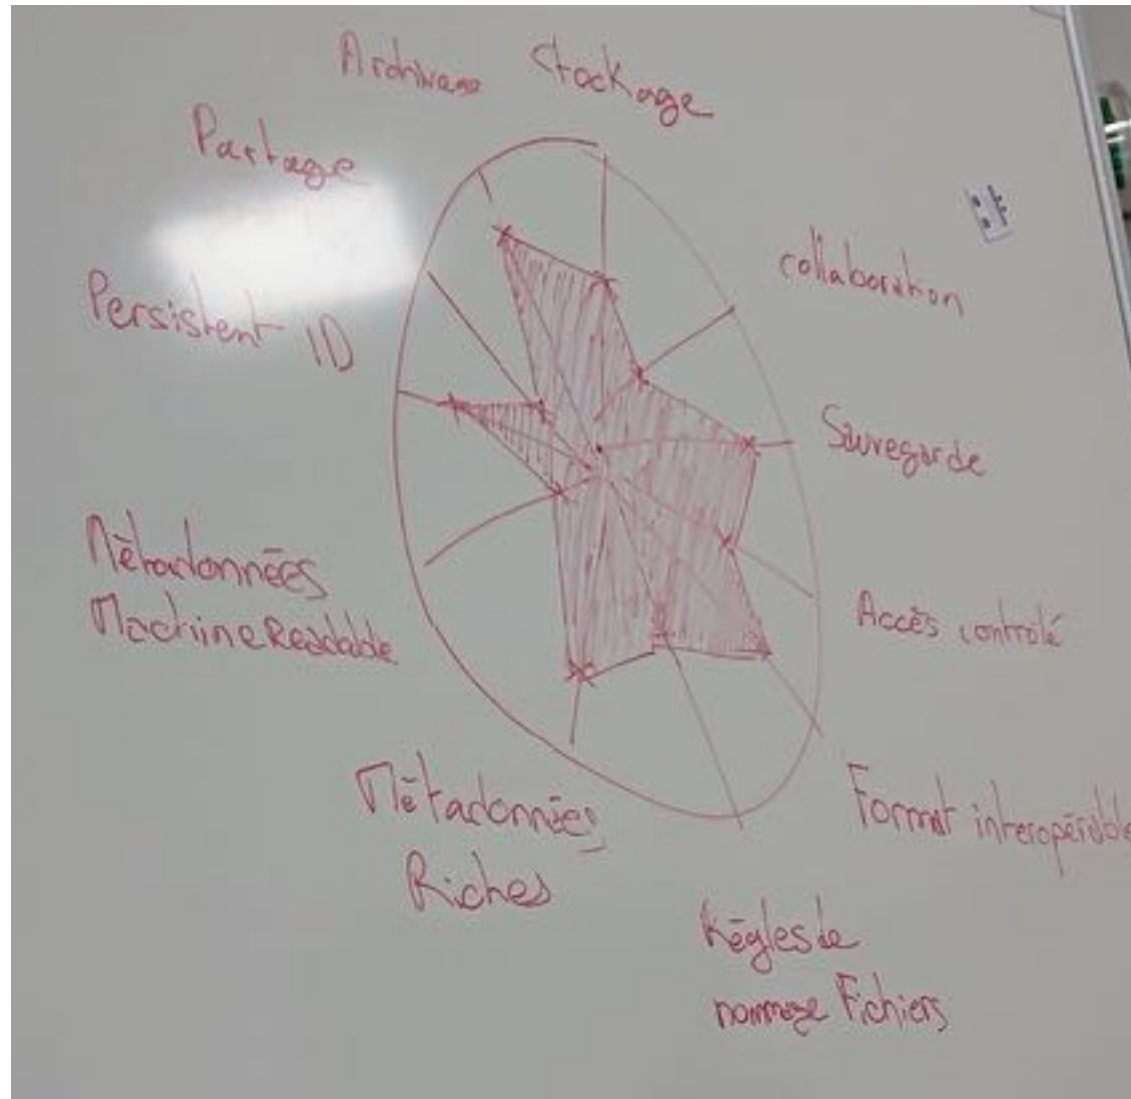 Archivage
Stockage
Partage
collaboration
Persistent ID
Sauvegarde
Mētadonnēes
Machine Readable
Accès controlé
Mētadonnēes
Riches
Format interopērable
Rēgles de
nommage Fichiers